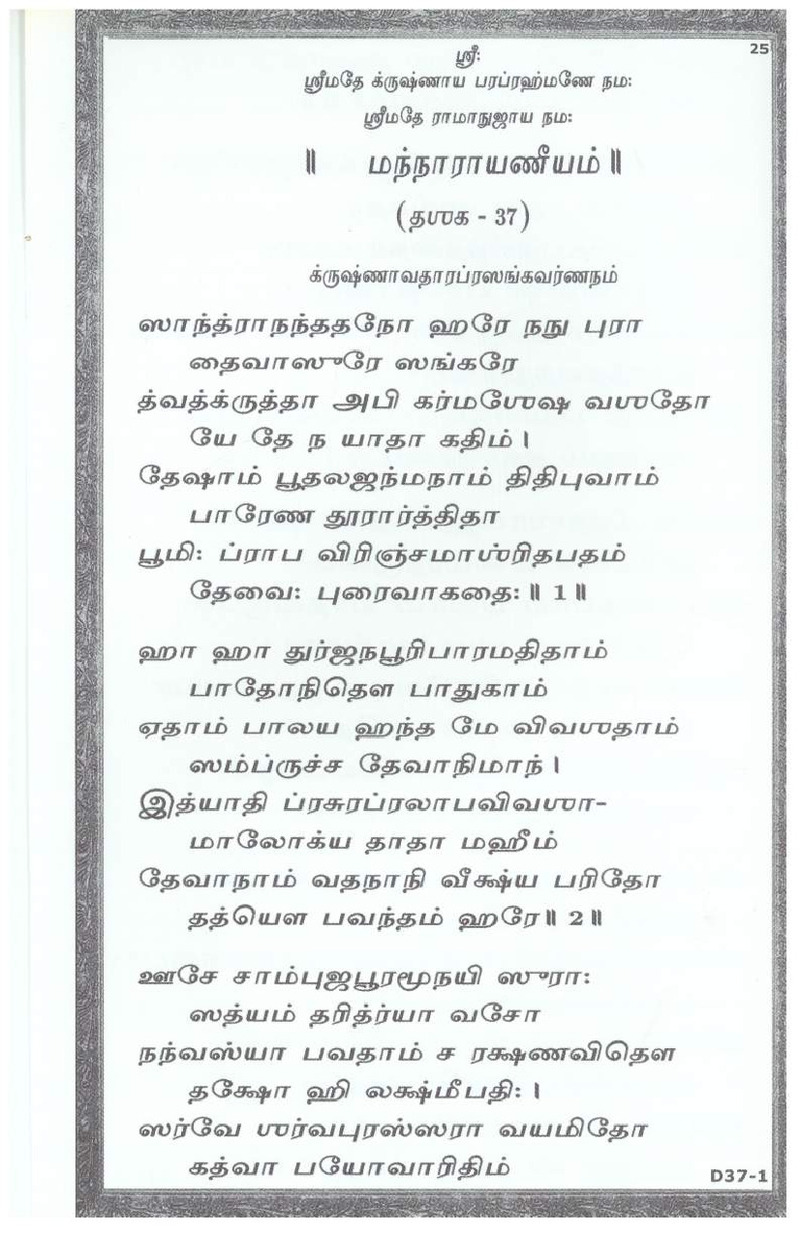 25
ஸ்ரீ:
ஸ்ரீமதே க்ருஷ்ணாய பரப்ரஹ்மணே நம:
ஸ்ரீமதே ராமாநுஜாய நம:
॥ மந்நாராயணீயம் ॥
(தஶக - 37)
க்ருஷ்ணாவதாரப்ரஸங்கவர்ணநம்
ஸாந்த்ராநந்ததநோ ஹரே நநு புரா
தைவாஸுரே ஸங்கரே
த்வத்க்ருத்தா அபி கர்மஶேஷ வஶதோ
யே தே ந யாதா கதிம் ।
தேஷாம் பூதலஜந்மநாம் திதிபுவாம்
பாரேண தூரார்த்திதா
பூமி: ப்ராப விரிஞ்சமாஶ்ரிதபதம்
தேவை: புரைவாகதை: ॥ 1 ॥
ஹா ஹா துர்ஜநபூரிபாரமதிதாம்
பாதோநிதௌ பாதுகாம்
ஏதாம் பாலய ஹந்த மே விவஶதாம்
ஸம்ப்ருச்ச தேவாநிமாந் ।
இத்யாதி ப்ரசுரப்ரலாபவிவஶா-
மாலோக்ய தாதா மஹீம்
தேவாநாம் வதநாநி வீக்ஷ்ய பரிதோ
தத்யௌ பவந்தம் ஹரே ॥ 2 ॥
ஊசே சாம்புஜபூரமூநயி ஸுரா:
ஸத்யம் தரித்ர்யா வசோ
நந்வஸ்யா பவதாம் ச ரக்ஷணவிதௌ
தக்ஷோ ஹி லக்ஷ்மீபதி: ।
ஸர்வே ஶர்வபுரஸ்ஸரா வயமிதோ
கத்வா பயோவாரிதிம்
D37-1